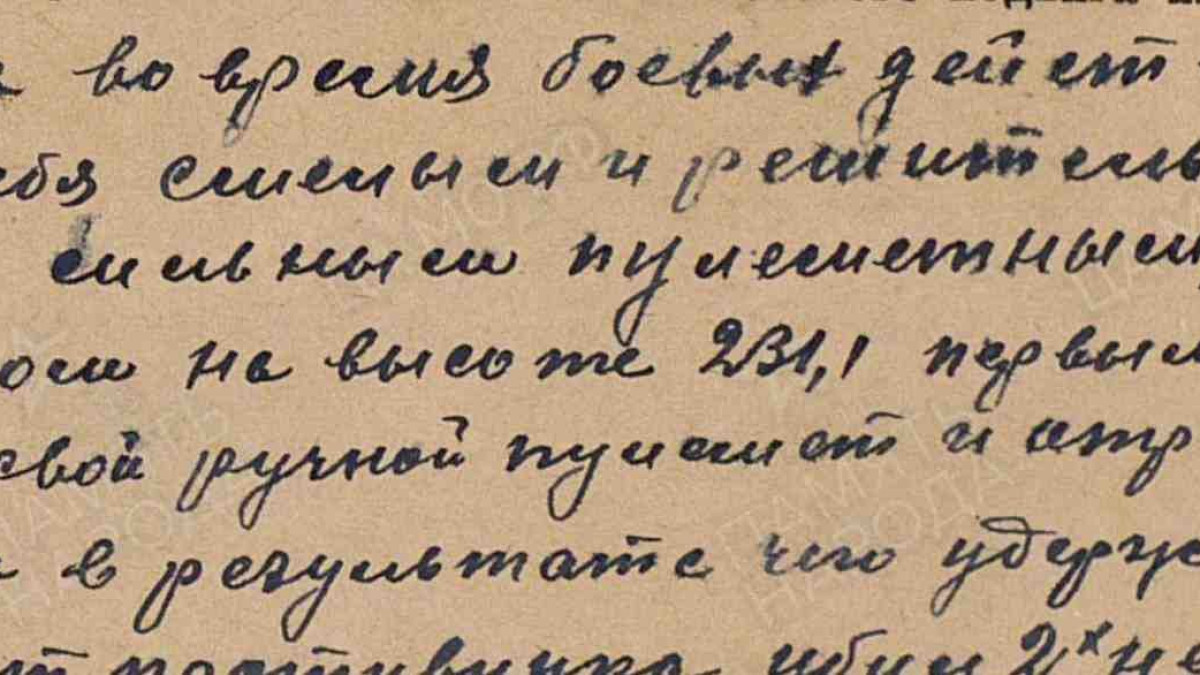 во время боевых дейст
ебя смелым и решитель
сильным пулеметным
ом на высоте 231,1 первым
свой ручной пулемет и отр
в результате чего удерж
противника убил 2х не